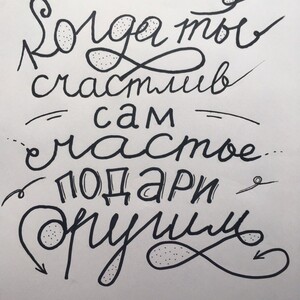 Когда ты
счастлив
сам
счастье
подари
другим